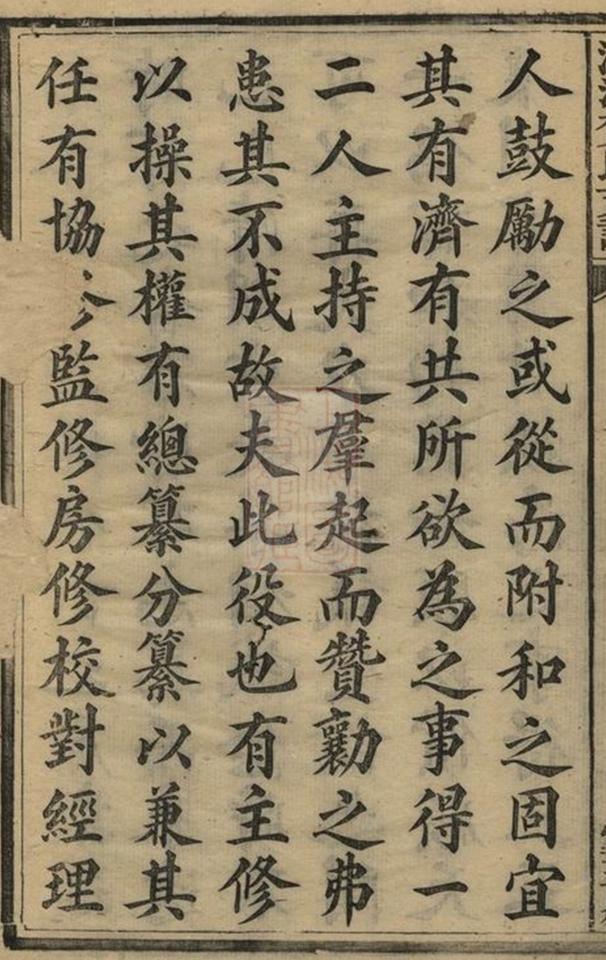 人鼓勵之或從而附和之固宜
其有濟有共所欲為之事得一
二人主持之羣起而贊勷之弗
患其不成故夫此役也有主修
以操其權有總纂分纂以兼其
任有協監修房修校對經理